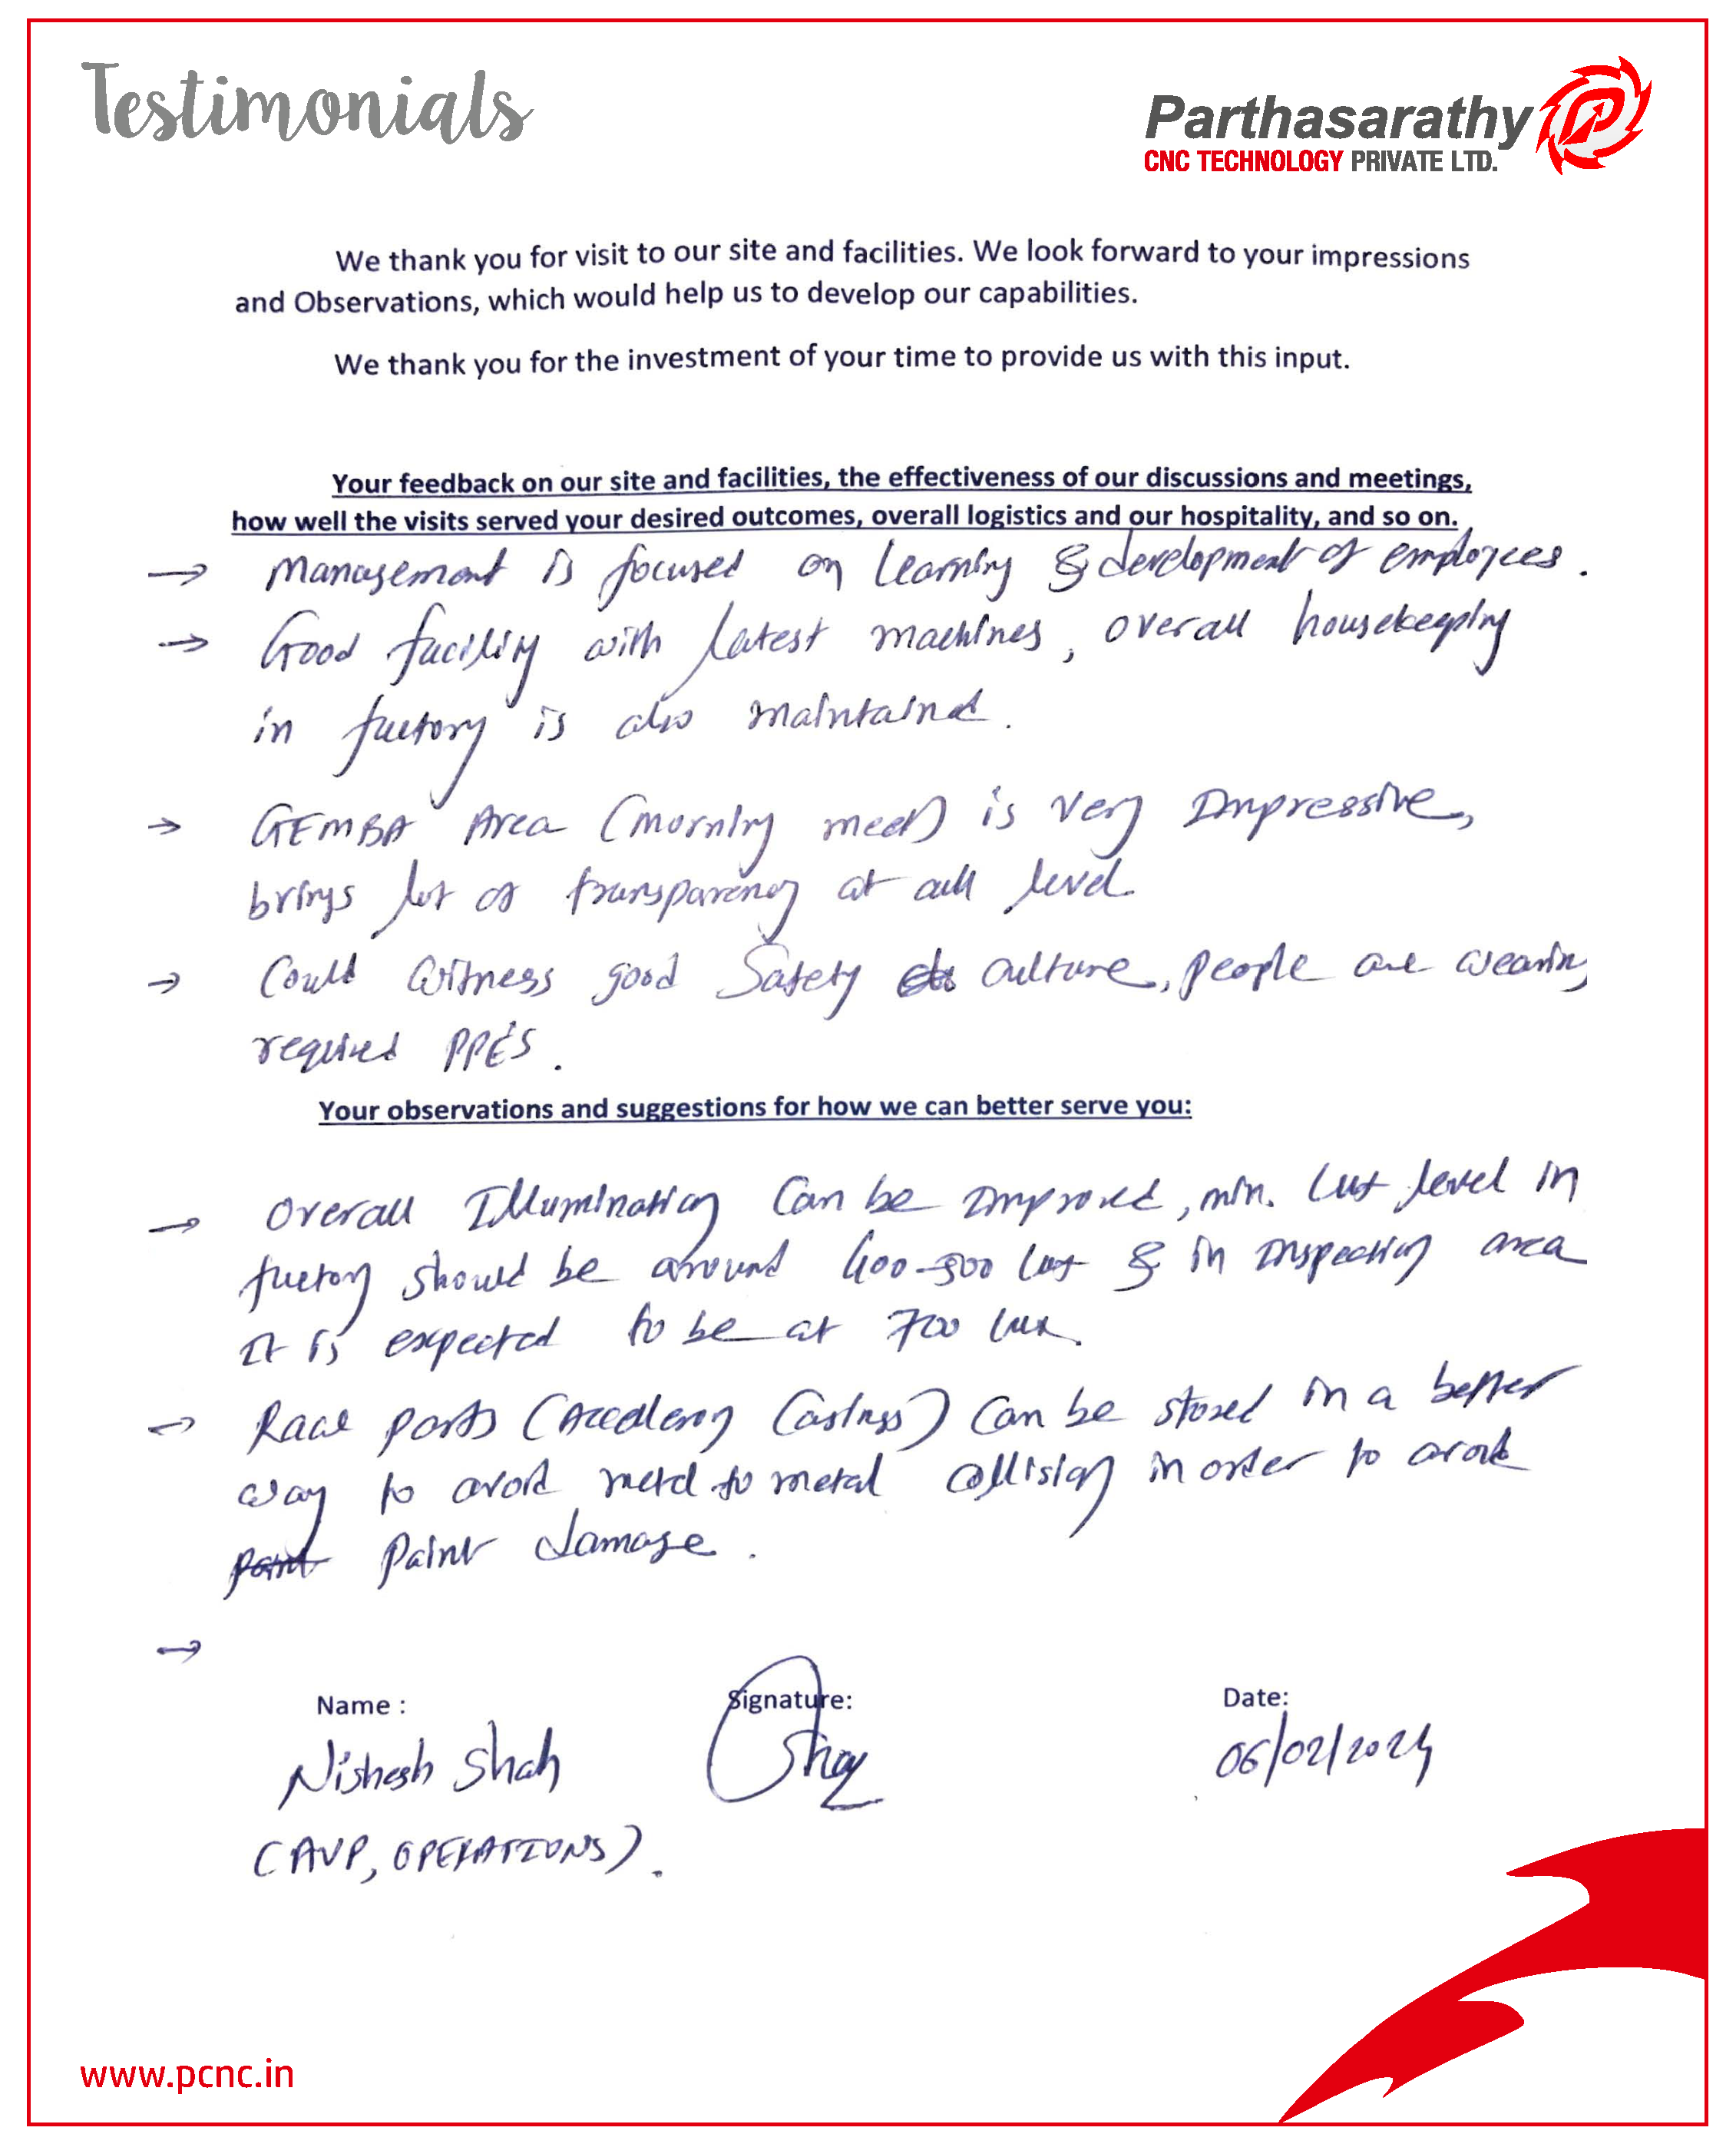 Testimonials
Parthasarathy
CNC TECHNOLOGY PRIVATE LTD.
We thank you for visit to our site and facilities. We look forward to your impressions
and Observations, which would help us to develop our capabilities.
We thank you for the investment of your time to provide us with this input.
Your feedback on our site and facilities, the effectiveness of our discussions and meetings,
how well the visits served your desired outcomes, overall logistics and our hospitality, and so on.
→ Management is focused on learning & development of employees.
→ Good facility with latest machines, overall housekeeping
in factory is also maintained.
→ GEMBA Area (morning meet) is very Impressive,
brings lot of transparency at all level
→ Could witness good Safety culture, people are wearing
required PPE'S.
Your observations and suggestions for how we can better serve you:
→ Overall Illumination Can be Improved, min. lux level in
factory should be around 400-500 lux & in Inspection area
It is expected to be at 700 lux.
→ parts (Castings) can be stored in a better
way to avoid metal to metal collision in order to avoid
paint damage.
→
Name :
Signature:
Date:
Nishesh Shah
06/02/2024
(AVP, OPERATIONS).
www.pcnc.in